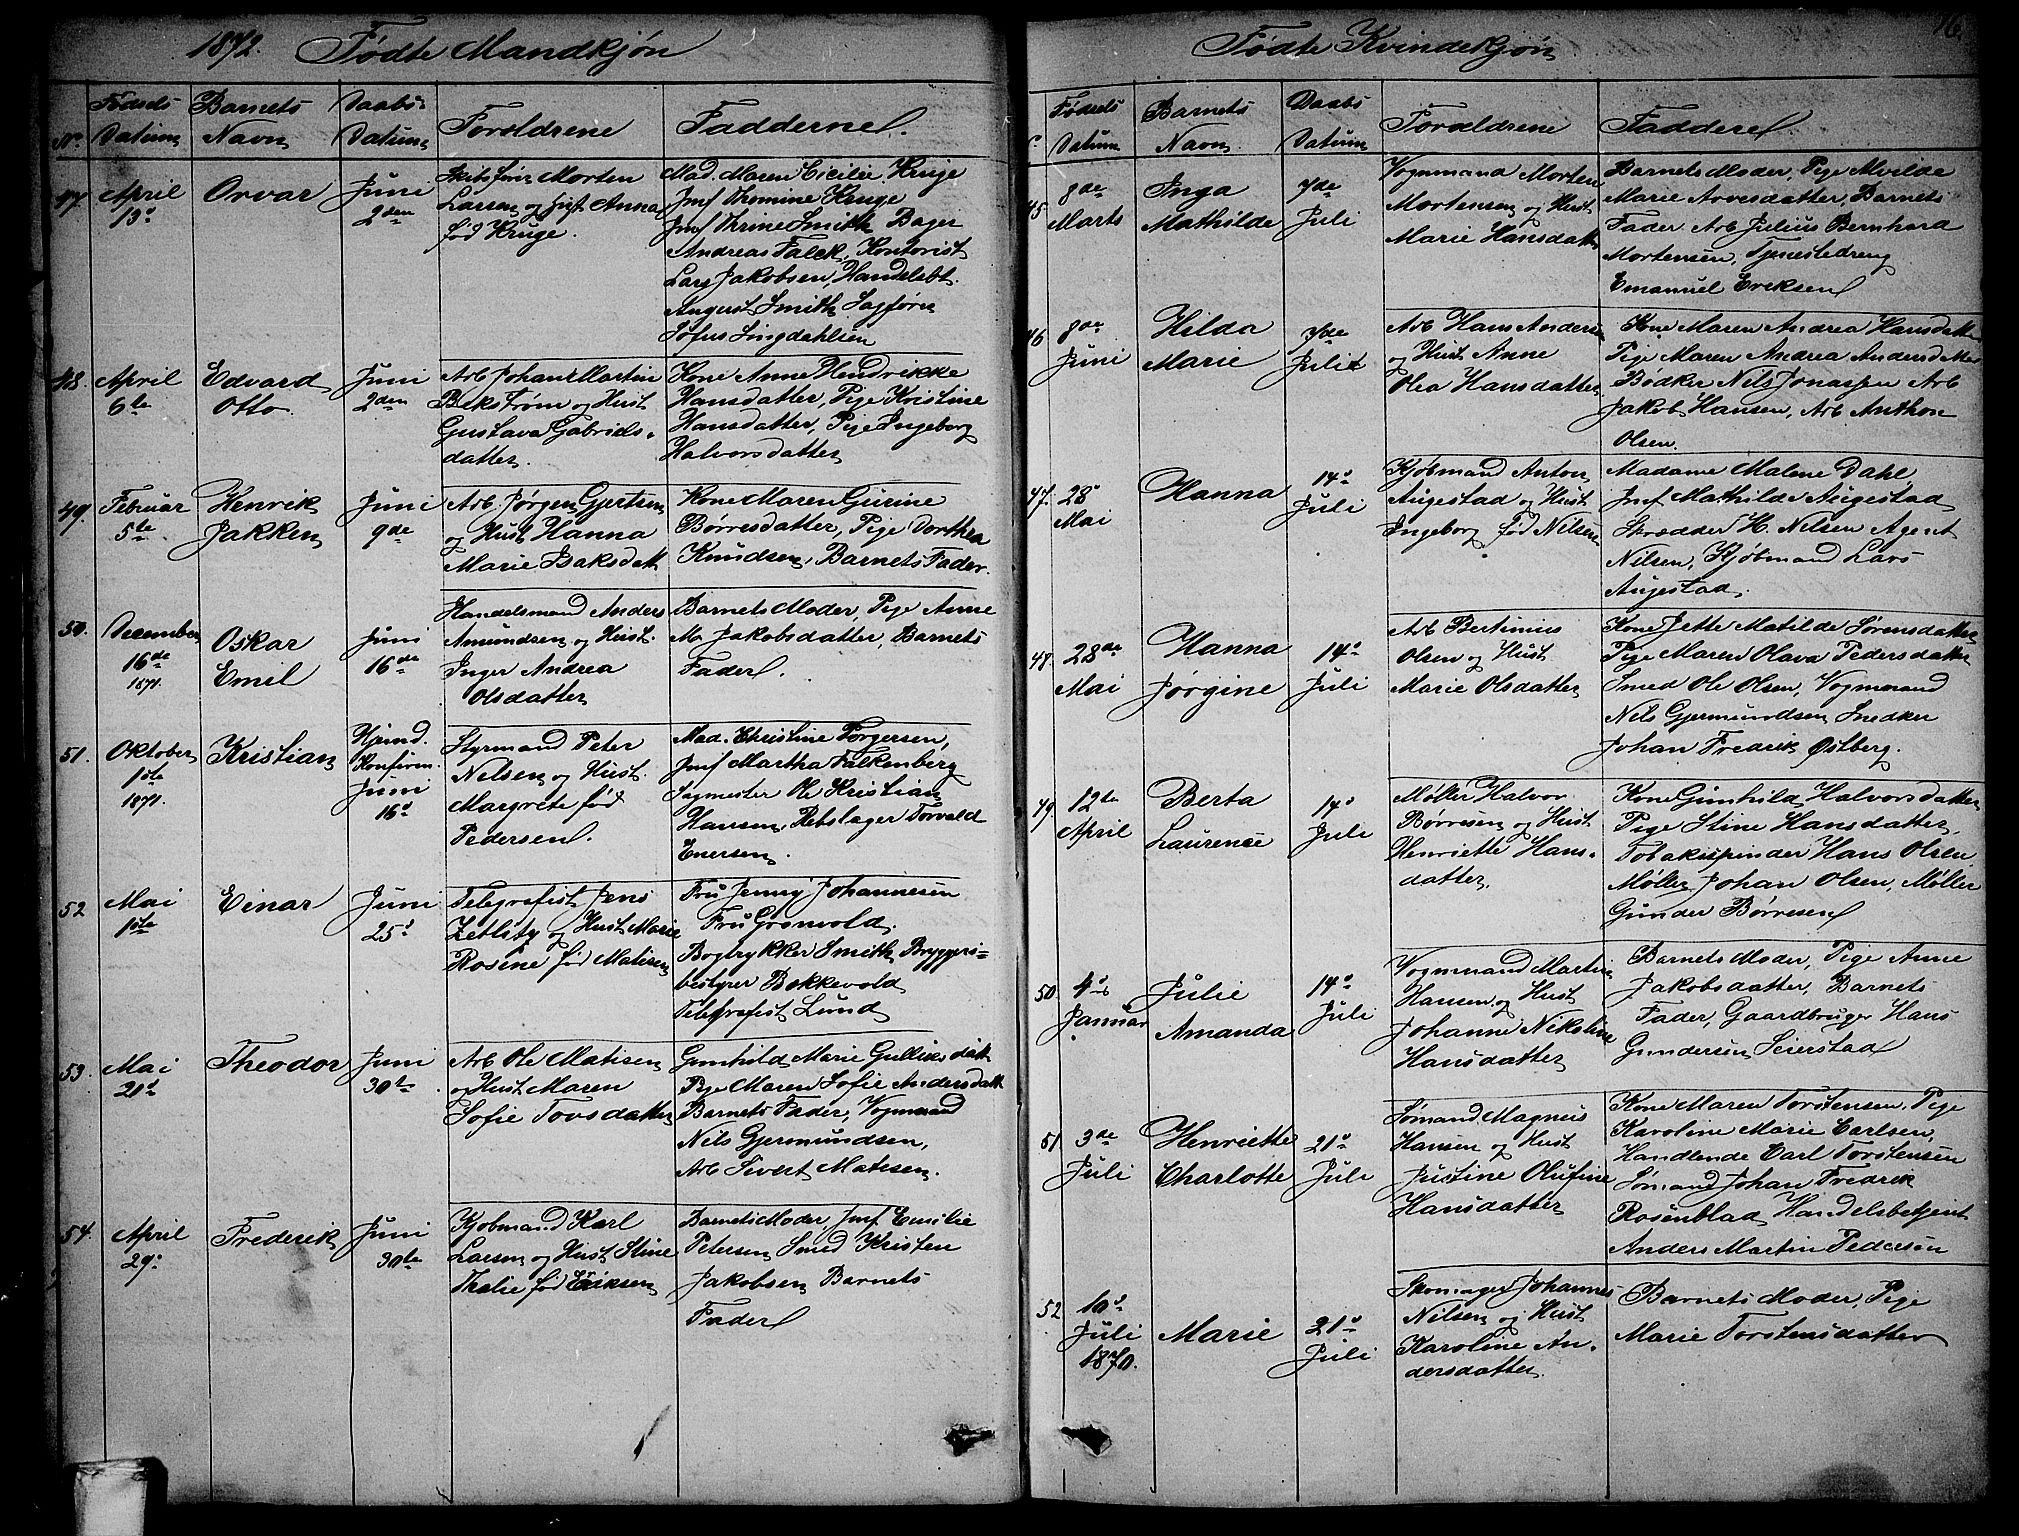 1872. Fødte Mandkjøn
No.
Fødsels Datum
Barnets Navn
Daabs Datum
Forældrene
Fadderne
47
April 13d
Orvar
Juni 2den
Morten
Larsen og Hust. Anna
fød Kruge.
Mad. Maren Cicilie Kruge
Jmf Thrine Smith, Bager
Andreas Falck, Kontorist
Lars Jakobsen, Handelsbt.
August Smith Sagfører
Sofus Lingdahlsen
48.
April 6te
Edvard
Otto.
Juni 2den
Arb Johan Martin
Bekstrøm og Hust
Gustava Gabriels-
datter.
Kone Anne Hendrikke
Hansdatter, Pige Kristine
Hansdatter, Pige Ingeborg
Halvorsdatter
49.
Februar 5te
Henrik
Jakken
Juni 9de
Arb. Jørgen Gjertsen
og Hust Hanna
Marie
Kone Maren Gurine
Børresdatter, Pige Dorthea
Knudsen, Barnets Fader.
50.
December
16de
1871.
Oskar
Emil
Juni
16de
Handelsmand Anders
Amundsen og Hust.
Inger Andrea
Olsdatter
Barnets Moder, Pige Anne
M. Jakobsdatter, Barnets
Fader.
51.
Oktober
1ste
1871.
Kristian
Hjemd.
Konfirm.
Juni
16d
Styrmand Peter
Nelsen og Hust.
Margrete fød
Pedersen.
Mad. Christine Torgersen,
Jmf Martha Falkenberg
Sagmester Ole Kristian
Hansen, Rebslager Torvald
Enersen.
52
Mai
1ste
Einar
Juni
25d
Telegrafist Jens
Zetlitz og Hust Marie
Rosine fød Matisen
Fru Jenny Johannesen
Fru Gronvold.
Bogtrykker Smith, Bryggeri-
bestyrer Bokkevold
Telegrafist Lund
53.
Mai
21d
Theodor
Juni
30te
Arb Ole Matisen
og Hust Maren
Sofie Tovsdatter
Gunhild Marie Gulliksdatt
Pige Maren Sofie Andersdatt
Barnets Fader, Vognmand
Nils Gjermundsen,
Arb Sivert Matisen.
54.
April
29d
Frederik
Juni
30te
Kjøbmand Karl
Larsen og Hust Stine
Thalie fød Eriksen
Barnets Moder, Jmf. Emilie
Petersen, Smed Kristen
Jakobsen, Barnets
Fader
Fødte Kvindekjøn
76.
Fødsels Datum
Barnets Navn.
Daabs Datum
Forældrene
Faddere
45
8de
Marts
Inga
Mathilde
7de
Juli
Vognmand Morten
Mortensen og Hust
Marie Hansdatt
Barnets Moder, Pige Mvilde
Marie Arvesdatter, Barnets
Fader Arb Julius Bernhard
Mortensen, Tjenestedreng
Emanuel Eriksen
46
8de
Juni
Hilda
Marie
7de
Juli
Arb Hans Andersen
og Hust Anne
Olea Hansdatter.
Kone Maren Andrea Hansdatter
Pige Maren Andrea Andersdatter
Bødker Nils Jonassen Arb
Jakob Hansen, Arb Anthon
Olsen.
47.
28d
Mai
Hanna
14d
Juli
Kjøbmand Anton
Augestad og Hust
Ingeborg fød Nilsen
Madame Malene Dahl,
Jmf Mathilde Augestad
Skrædder H. Nilsen Agent
Nilsen, Kjøbmand Lars
Augestad.
48.
28de
Mai
Hanna
Jørgine
14d
Juli
Arb Bertinius
Olsen og Hust
Marie Olsdatter
Kone Jette Matilde Sørensdatter
Pige Maren Olava Pedersdatter
Smed Ole Olsen, Vognmand
Nils Gjermundsen Snedker
Johan Fredrik Østberg.
49.
12te
April
Berta
Laurence
14d
Juli
Møller Halvor
Børresen og Hust
Henriette Hans-
datter.
Kone Gunhild Halvorsdatter
Pige Stine Hansdatter,
Tobakspinder Hans Olsen
Møller Johan Olsen, Møller
Gunder Børresen
50.
4d
Januar
Julie
Amanda
14d
Juli
Vognmand Martin
Hansen og Hust
Johanne Nikoline
Hansdatter
Barnets Moder, Pige Anne
Jakobsdatter, Barnets
Fader, Gaardbruger Hans
Gundersen Seierstad
51
3de
Juli
Henriette
Charlotte
21d
Juli
Sømand Magnus
Hansen og Hust
Justine Olufine
Hansdatter
Kone Maren Torstensen, Pige
Karoline Marie Carlsen,
Handlende Carl Torstensen
Sømand Johan Fredrik
Rosenblad, Handelsbetjent
Anders Martin Pedersen
52
10d
Juli
1870.
Marie
21d
Juli
Skomager Johannes
Nilsen og Hust
Karoline An-
dersdatter.
Barnets Moder, Pige
Marie Torstensdatter